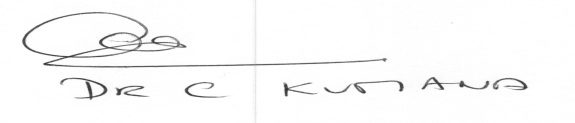 DR C KUMANA